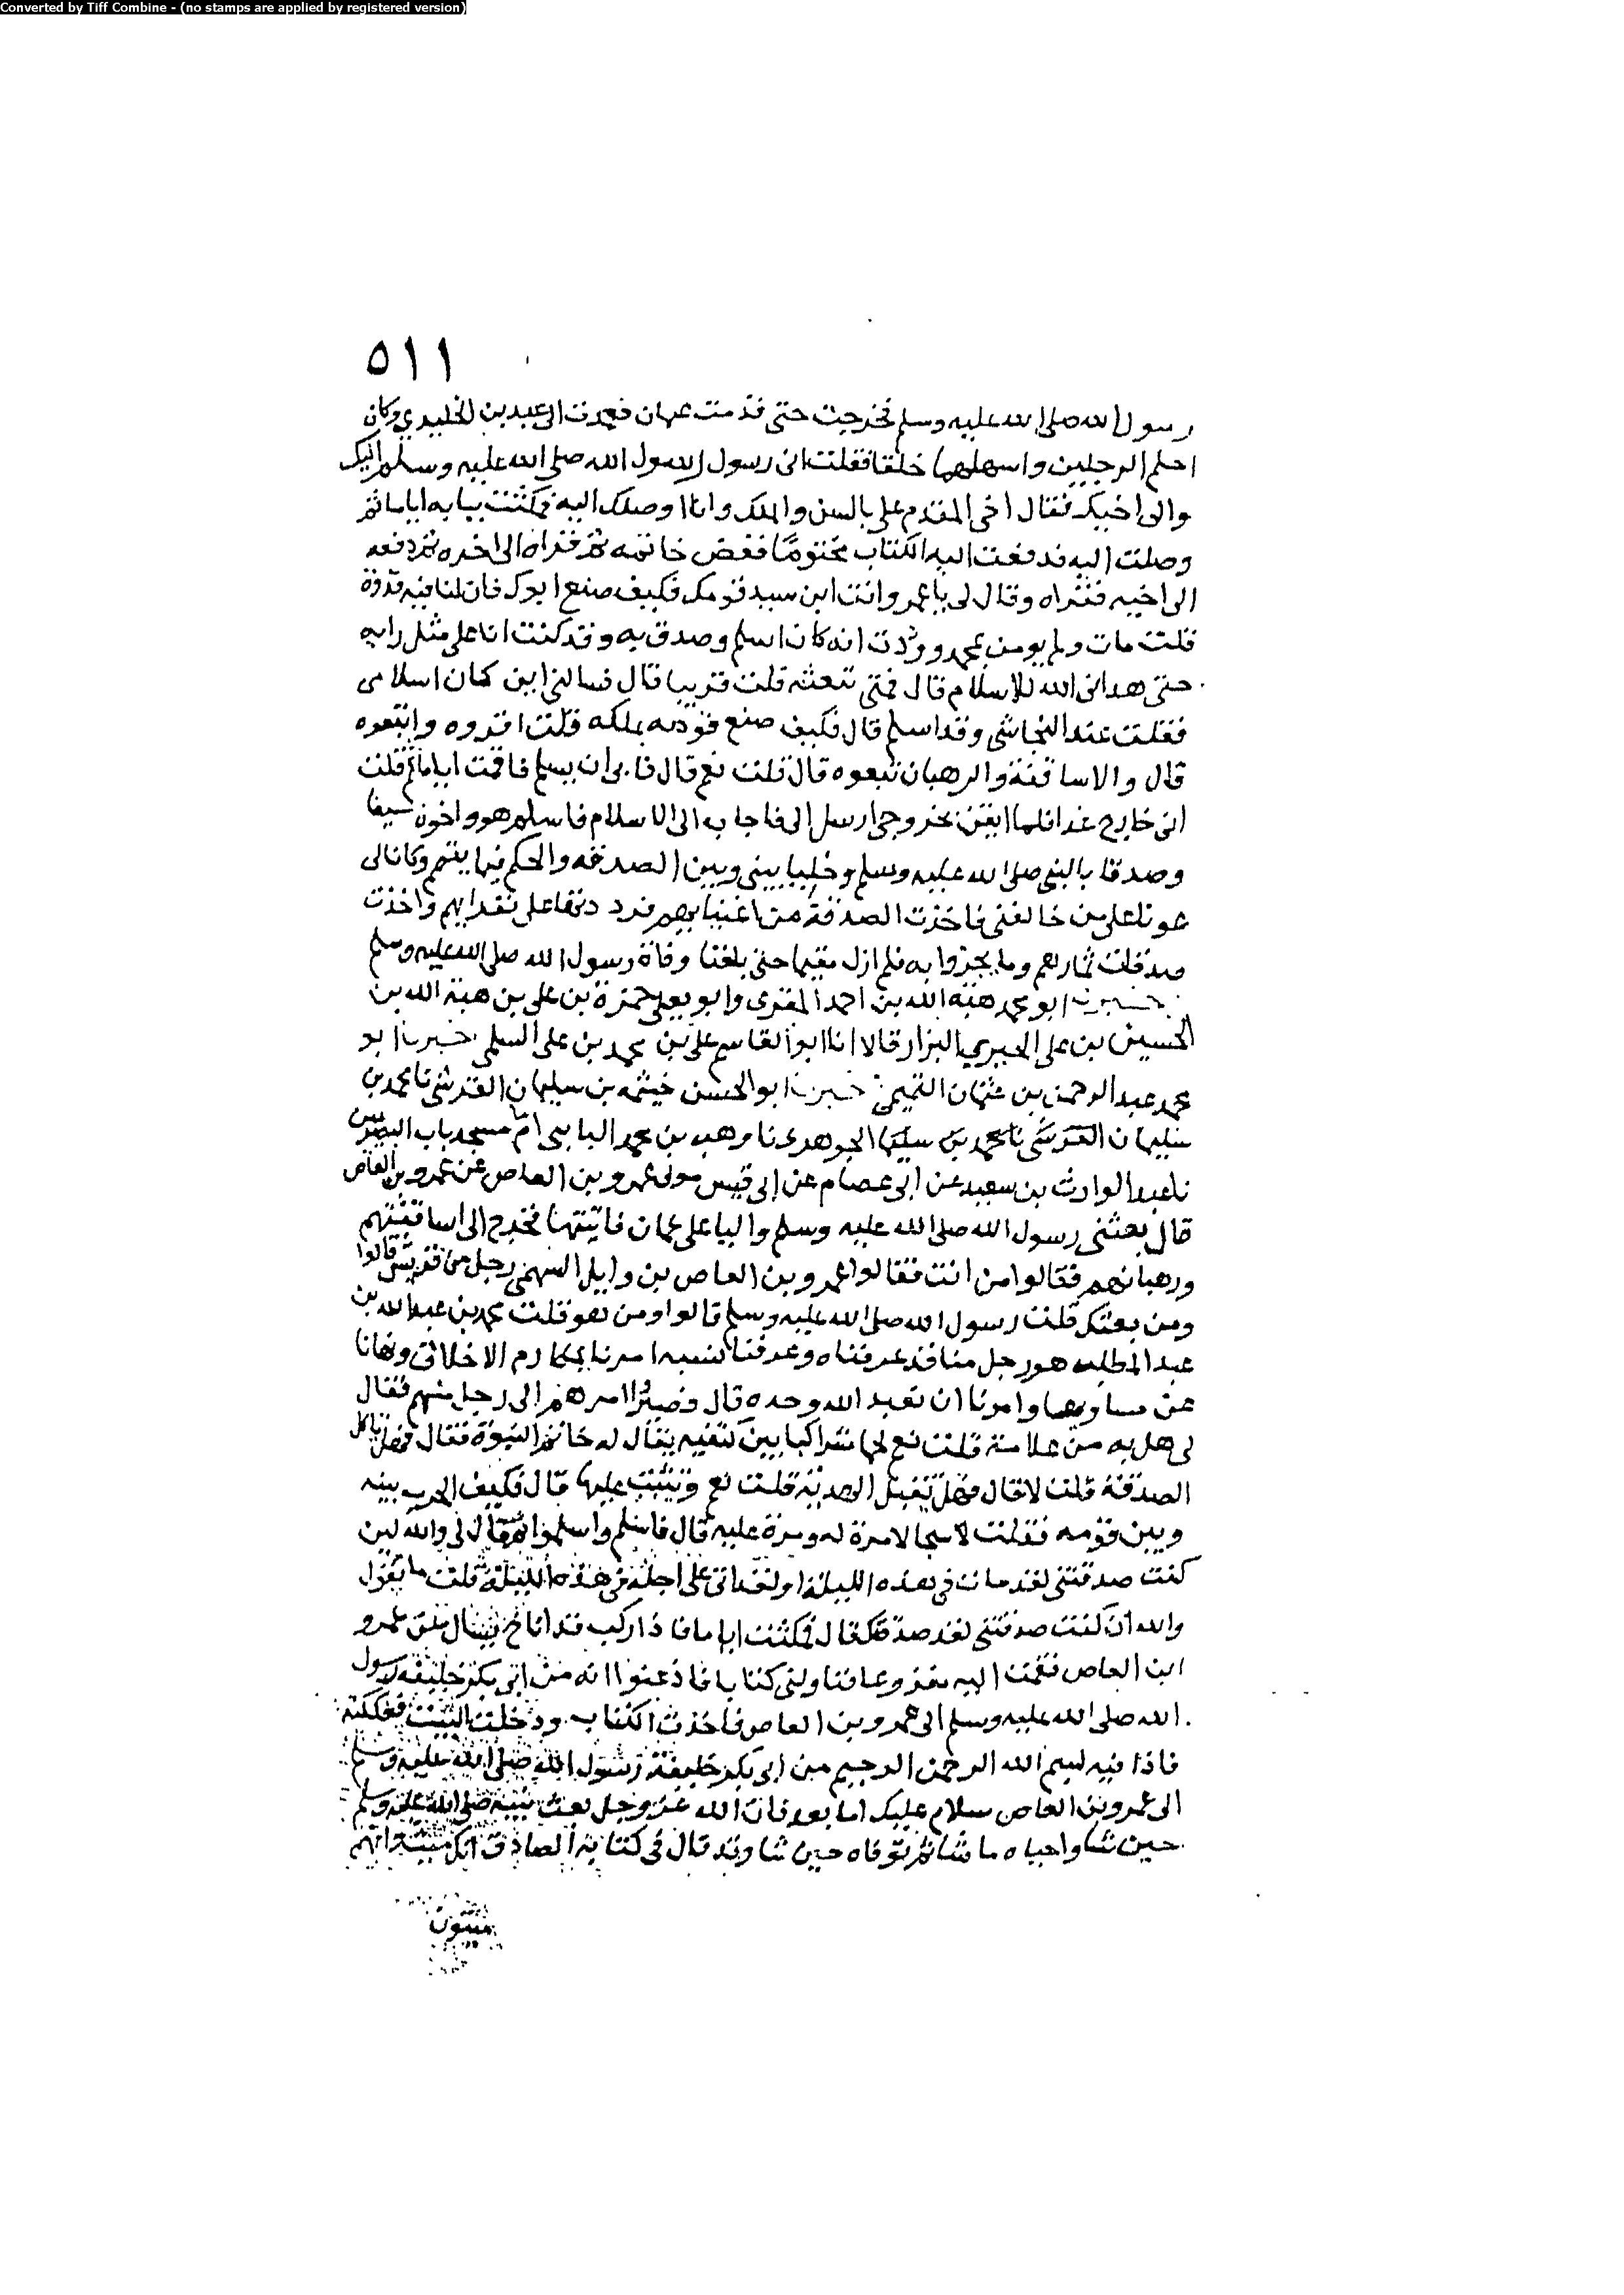 Converted by Tiff Combine - (no stamps are applied by registered version)
٥١١
رسول الله صلى الله عليه وسلم فخرجت حتى قدمت عمان فعمدت الى عبد بن الجليدي وكان
احلم الرجلين واسهلهما خلقا فقلت انى رسول رسول الله صلى الله عليه وسلم اليك
والى اخيك فقال اخى المقدم على بالسن والملك وانا اوصلك اليه فمكثت ببابه اياما ثم
وصلت اليه فدفعت اليه الكتاب مختوما ففض خاتمه ثم قراه الى اخره ثم دفعه
الى اخيه فقراه وقال لى يا عمرو انت ابن سيد قومك فكيف صنع ابوك فان لنا فيه قدوة
قلت مات ولم يومن بمحمد ووددت انه كان اسلم وصدق به وقد كنت انا على مثل رايه
حتى هدانى الله للاسلام قال فمتى تبعته قلت قريبا قال فسالنى اين كان اسلامى
فقلت عند النجاشى وقد اسلم قال فكيف صنع قومه بملكه قلت اقروه واتبعوه
قال والاساقفة والرهبان تبعوه قال قلت نعم قال فابى ان يسلم فاقمت اياما ثم قلت
انى خارج غدا فلما ايقن بخروجى ارسل الى فاجاب الى الاسلام فاسلم هو واخوه جميعا
وصدقا بالنبى صلى الله عليه وسلم وخليا بينى وبين الصدقة والحكم فيما بينهم وكانا لى
عونا على من خالفنى فاخذت الصدقة من اغنيايهم فرددتها على فقرايهم واخذت
صدقات ثمارهم وما يجزوا به فلم ازل مقيما حتى بلغنا وفاة رسول الله صلى الله عليه وسلم
خبرنا ابو محمد هبة الله بن احمد المقرى وابو يعلى حمزة بن على بن هبة الله بن
الحسين بن على الحبري البزار قالا انا ابو القاسم على بن محمد بن على السلمى خبرنا ابو
محمد عبد الرحمن بن عثمان التميمى خبرنا ابو الحسن خيثمه بن سليمان القرشى نا محمد بن
سليمان القرشى نا محمد بن سليمان الجوهرى نا وهب بن محمد البنانى امام مسجد باب البصريين
نا عبد الوارث بن سعيد عن ابى عصام عن ابى قيس مولى عمرو بن العاص عن عمرو بن العاص
قال بعثنى رسول الله صلى الله عليه وسلم واليا على عمان فاتيتها فخرج الى اساقفتهم
ورهبانهم فقالوا من انت فقالوا عمرو بن العاص بن وايل السهمى رجل من قريش قالوا
ومن بعثك قلت رسول الله صلى الله عليه وسلم قالوا ومن هو قلت محمد بن عبد الله بن
عبد المطلب هو رجل منا قد عرفناه وعرفنا نسبه امرنا بمكارم الاخلاق ونهانا
عن مساويها وامرنا ان نعبد الله وحده قال فصيروا امرهم الى رجل منهم فقال
لى هل به من علامة قلت نعم لحما متراكبا بين كتفيه يقال له خاتم النبوة فقال فهل ياكل
الصدقة قلت لا قال فهل يقبل الهدية قلت نعم ويثيب عليها قال فكيف الحرب بينه
وبين قومه فقلت سجالا مرة له ومرة عليه قال فاسلم واسلموا ثم قال لى والله لين
كنت صدقتنى لقد مات فى هذه الليلة او لقد اتى على اجله فى هذه الليلة قلت ما تقول
والله ان كنت صدقتنى لقد صدقتك قال فمكثت اياما فاذا ركب قد اناخ يسال عن عمرو
ابن العاص فقمت اليه مفزوعا فناولنى كتابا فاذا عنوانه من ابى بكر خليفة رسول
الله صلى الله عليه وسلم الى عمرو بن العاص فاخذت الكتاب ودخلت البيت ففككته
فاذا فيه بسم الله الرحمن الرحيم من ابى بكر خليفة رسول الله صلى الله عليه وسلم
الى عمرو بن العاص سلام عليك اما بعد فان الله عز وجل بعث نبيه صلى الله عليه وسلم
حين شا واحياه ما شا ثم توفاه حين شا وقد قال فى كتابه الصادق انك ميت وانهم
ميتون